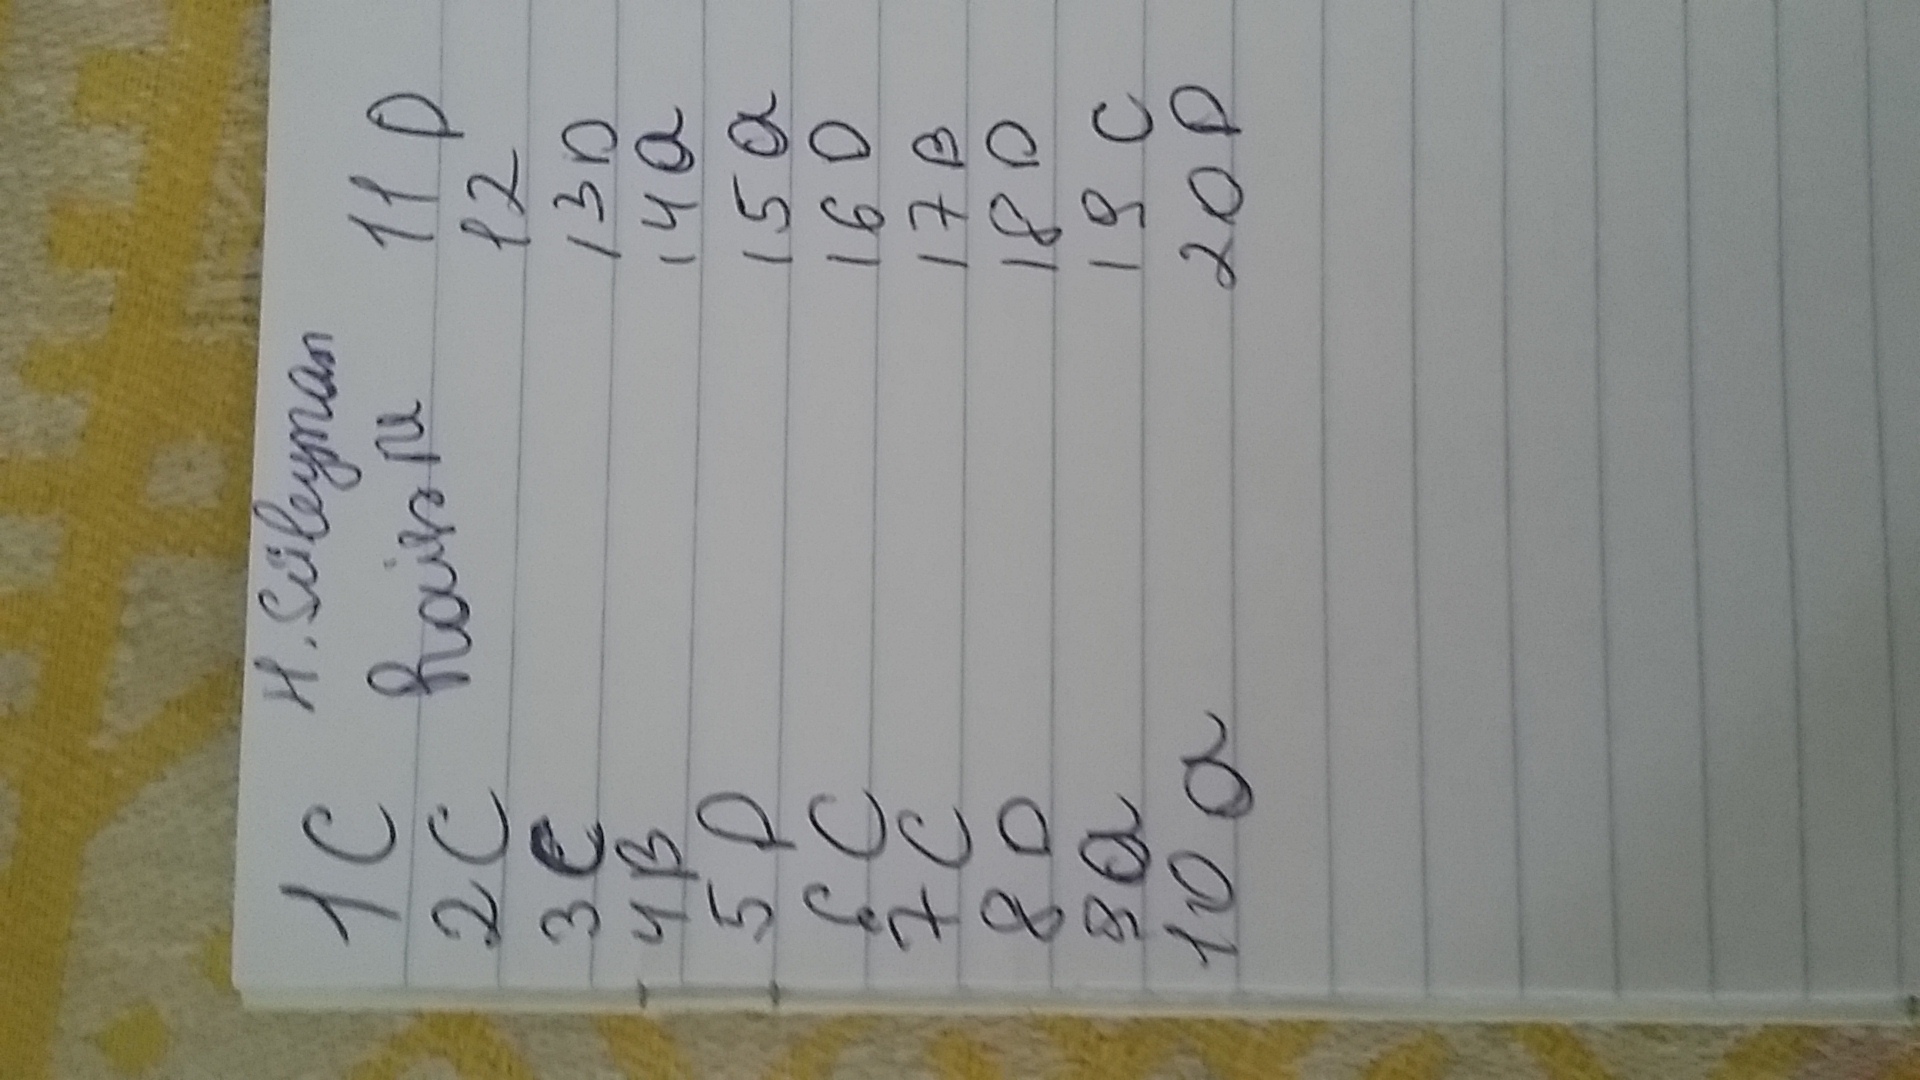 1 C
H. Süleyman
2 C
3 C
4 B
5 D
6 C
7 C
8 D
9 a
10 a
11 D
12
13 D
14 a
15 a
16 D
17 B
18 D
19 C
20 D